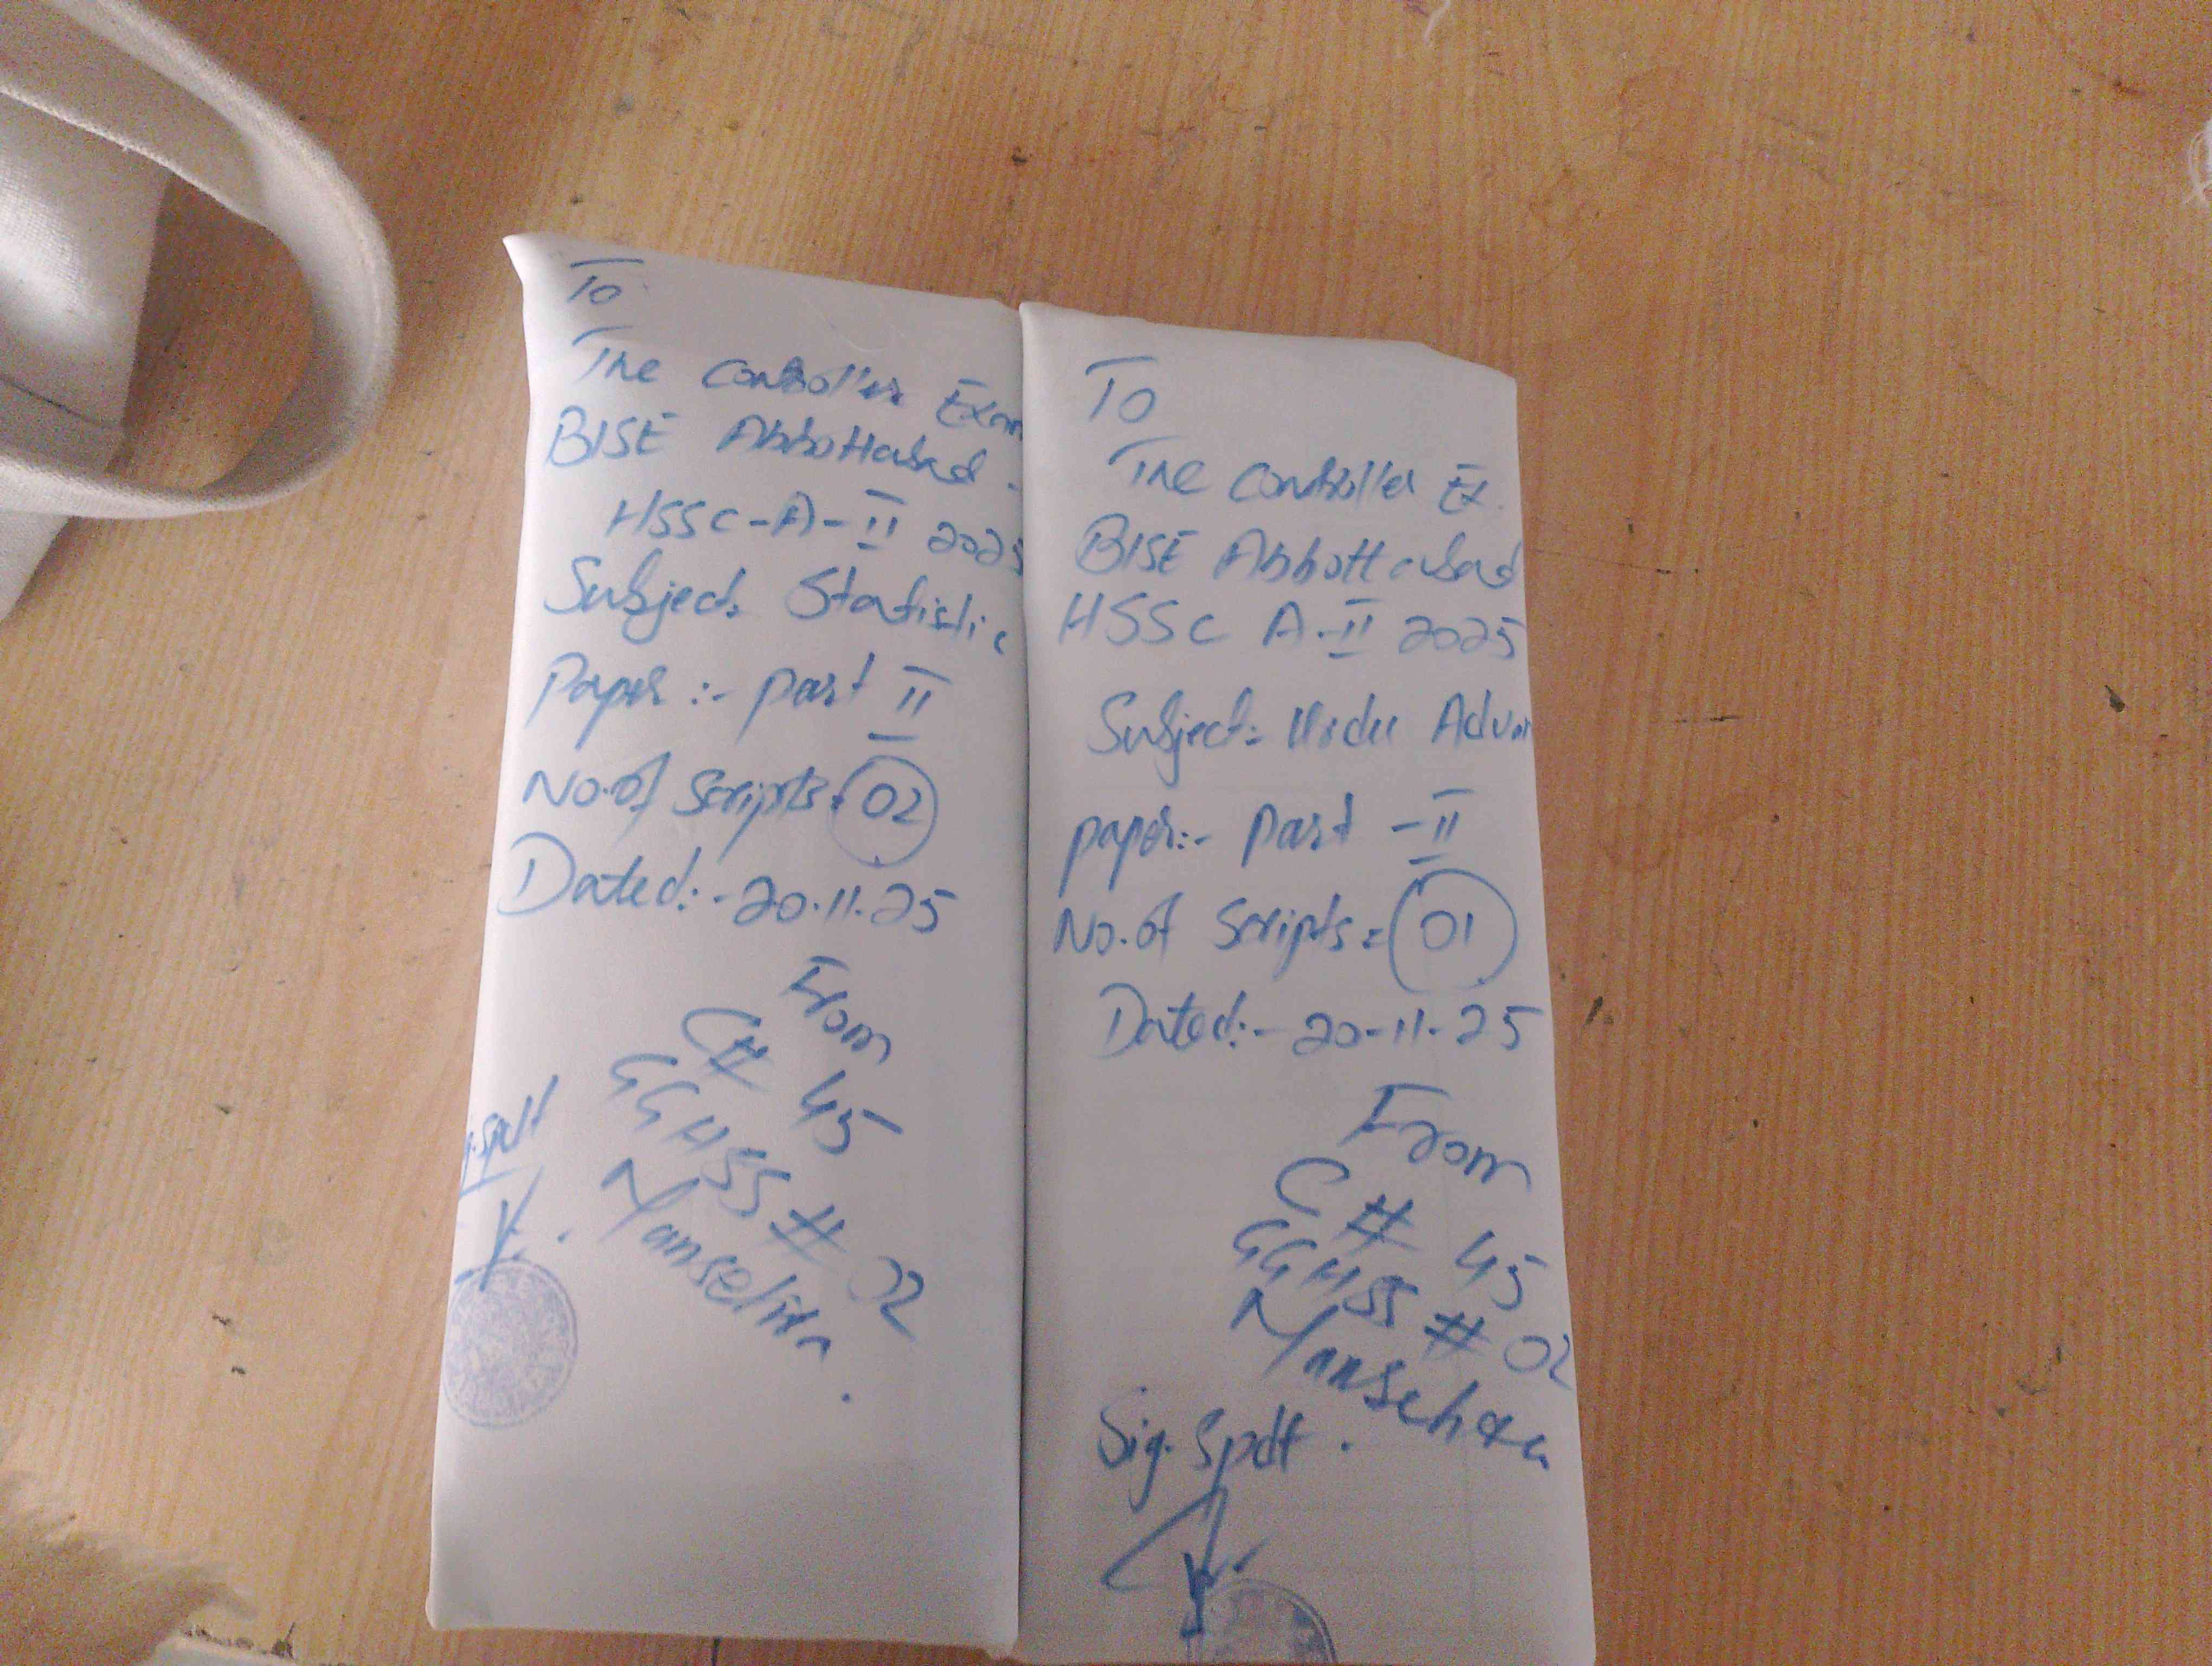 To
The Controller Exam
BISE Abbottabad.
HSSC-A-II 2025
Subject: Statistic
Paper :- Part II
No. of Scripts = 02
Dated:- 20.11.25
From
C# 45
GGHSS # 02
Mansehra.
g.spdt
To
The Controller Ex.
BISE Abbottabad
HSSC A-II 2025
Subject: Urdu Advan
paper:- Part -II
No. of Scripts = 01
Dated:- 20-11-25
From
C # 45
GGHSS # 02
Mansehra
Sig. Spdt.